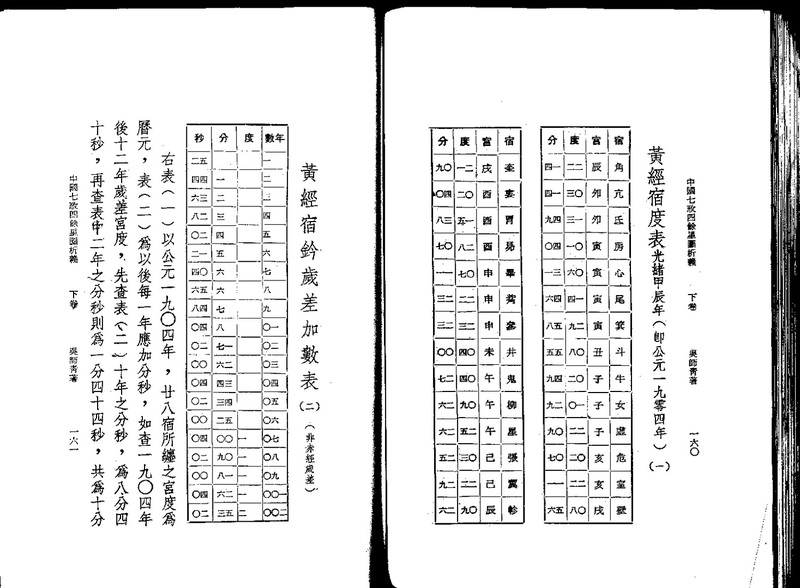 中國七政四餘星圖析義 下卷 吳師青著 一六〇
黃經宿度表光緒甲辰年(即公元一九零四年)(一)
宿 宮 度 分
角 辰 二二
亢 卯 〇三 一四
氐 卯 一三 四九
房 寅 〇一
心 寅 〇六 三一
尾 寅 一四 四六
箕 寅 二九 五八
斗 丑 〇八 五五
牛 子 〇二 四四
女 子 一〇
虛 子 二二 四九
危 亥 〇二 〇七
室 亥 二二
壁 戌 〇八 五六
宿 宮 度 分
奎 戌 二一 〇九
婁 酉
胃 酉 一五 三八
昴 酉 二八
畢 申 〇七
觜 申 二二 二三
參 申
井 未 〇四 〇〇
鬼 午 〇四 二三
柳 午 〇九
星 午 二五
張 巳 二五
翼 巳 二二 二九
軫 辰 〇九 二六
黃經宿鈐歲差加數表(二)(非赤經歲差)
年數 度 分 秒
一 五二
二 一 四四
三 二 三六
四 三 二八
五 四 二〇
六 五 一二
七 六 〇四
八 六 五六
九 七 四八
一〇 八 四〇
二〇 一七 二〇
三〇 二六 〇〇
四〇 三四 四〇
五〇 四三 二〇
六〇 五二 〇〇
七〇 一 〇〇 四〇
八〇 一 〇九 二〇
九〇 一 一八 〇〇
一〇〇 一 二六 四〇
二〇〇 二 五三 二〇
右表(一)以公元一九〇四年，廿八宿所纏之宮度為
曆元，表(二)為以後每一年應加分秒，如查一九〇四年
後十二年歲差宮度，先查表(二)十年之分秒，為八分四
十秒，再查表中二年之分秒則為一分四十四秒，共為十分
中國七政四餘星圖析義 下卷 吳師青著 一六一